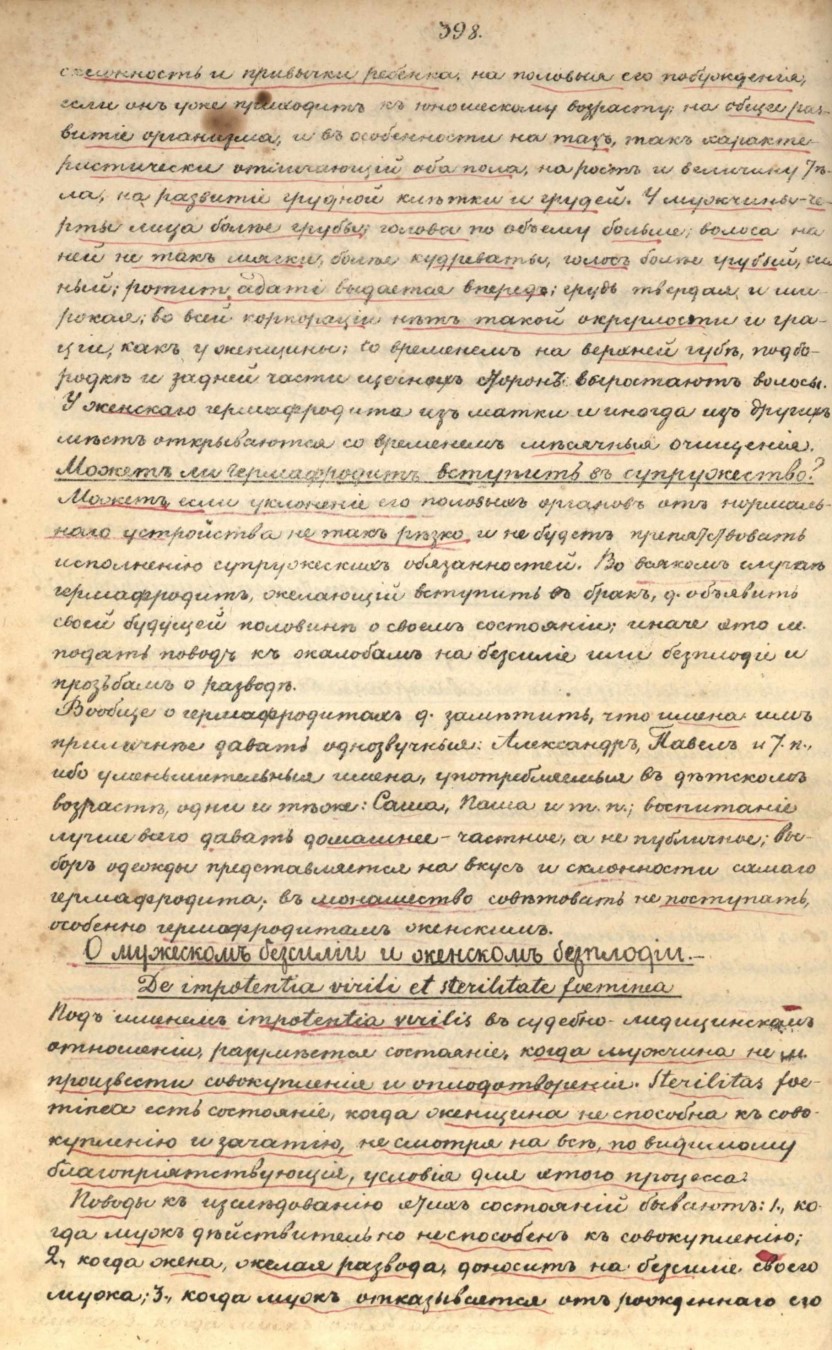 398.
склонность и привычки ребенка, на половыя его побужденія,
если онъ уже приходитъ къ юношескому возрасту; на общее раз-
витіе организма, и въ особенности на тазъ, такъ характе-
ристически отличающій оба пола, на ростъ и величину тѣ-
ла, на развитіе грудной клѣтки и грудей. У мужчины че-
рты лица болѣе грубы; голова по объему больше; волоса на
ней не такъ мягки, болѣе кудреваты, голосъ болѣе грубый, силь
ный; pomum adami выдается впередъ; грудь твердая и ши-
рокая; во всей корпораціи нѣтъ такой округлости и гра-
ціи, какъ у женщины; со временемъ на верхней губѣ, подбо-
родкѣ и задней части щечныхъ сторонъ выростаютъ волосы.
У женскаго гермафродита изъ матки и иногда изъ другихъ
мѣстъ открываются со временемъ мѣсячныя очищенія.
Можетъ ли гермафродитъ вступить въ супружество?
Можетъ, если уклоненіе его половыхъ органовъ отъ нормаль-
наго устройства не такъ рѣзко и не будетъ препятствовать
исполненію супружескихъ обязанностей. Во всякомъ случаѣ
гермафродитъ, желающій вступить въ бракъ, д. объявить
своей будущей половинѣ о своемъ состояніи; иначе это м.
подать поводъ къ жалобамъ на безсиліе или безплодіе и
прозьбамъ о разводѣ.
Вообще о гермафродитахъ д. замѣтить, что имена имъ
приличнѣе давать однозвучныя: Александръ, Павелъ и т. п.,
ибо уменьшительныя имена, употребляемыя въ дѣтскомъ
возрастѣ, одни и тѣже: Саша, Паша и т. п.; воспитаніе
лучше всего давать домашнее - частное, а не публичное; вы-
боръ одежды представляется на вкусъ и склонности самаго
гермафродита; въ монашество совѣтовать не поступать,
особенно гермафродитамъ женскимъ.
О мужескомъ безсиліи и женскомъ безплодіи.-
De impotentia virili et sterilitate foeminea
Подъ именемъ impotentia virilis въ судебно-медицинскомъ
отношеніи, разумѣется состояніе, когда мужчина не м.
произвести совокупленіе и оплодотвореніе. Sterilitas foe-
minea есть состояніе, когда женщина не способна къ сово-
купленію и зачатію, не смотря на всѣ, по видимому
благопріятствующія, условія для этого процесса.
Поводы къ изслѣдованію этихъ состояній бываютъ: 1., ко-
гда мужъ дѣйствительно неспособенъ къ совокупленію;
2., когда жена, желая развода, доноситъ на безсиліе своего
мужа; 3., когда мужъ отказывается отъ рожденнаго его